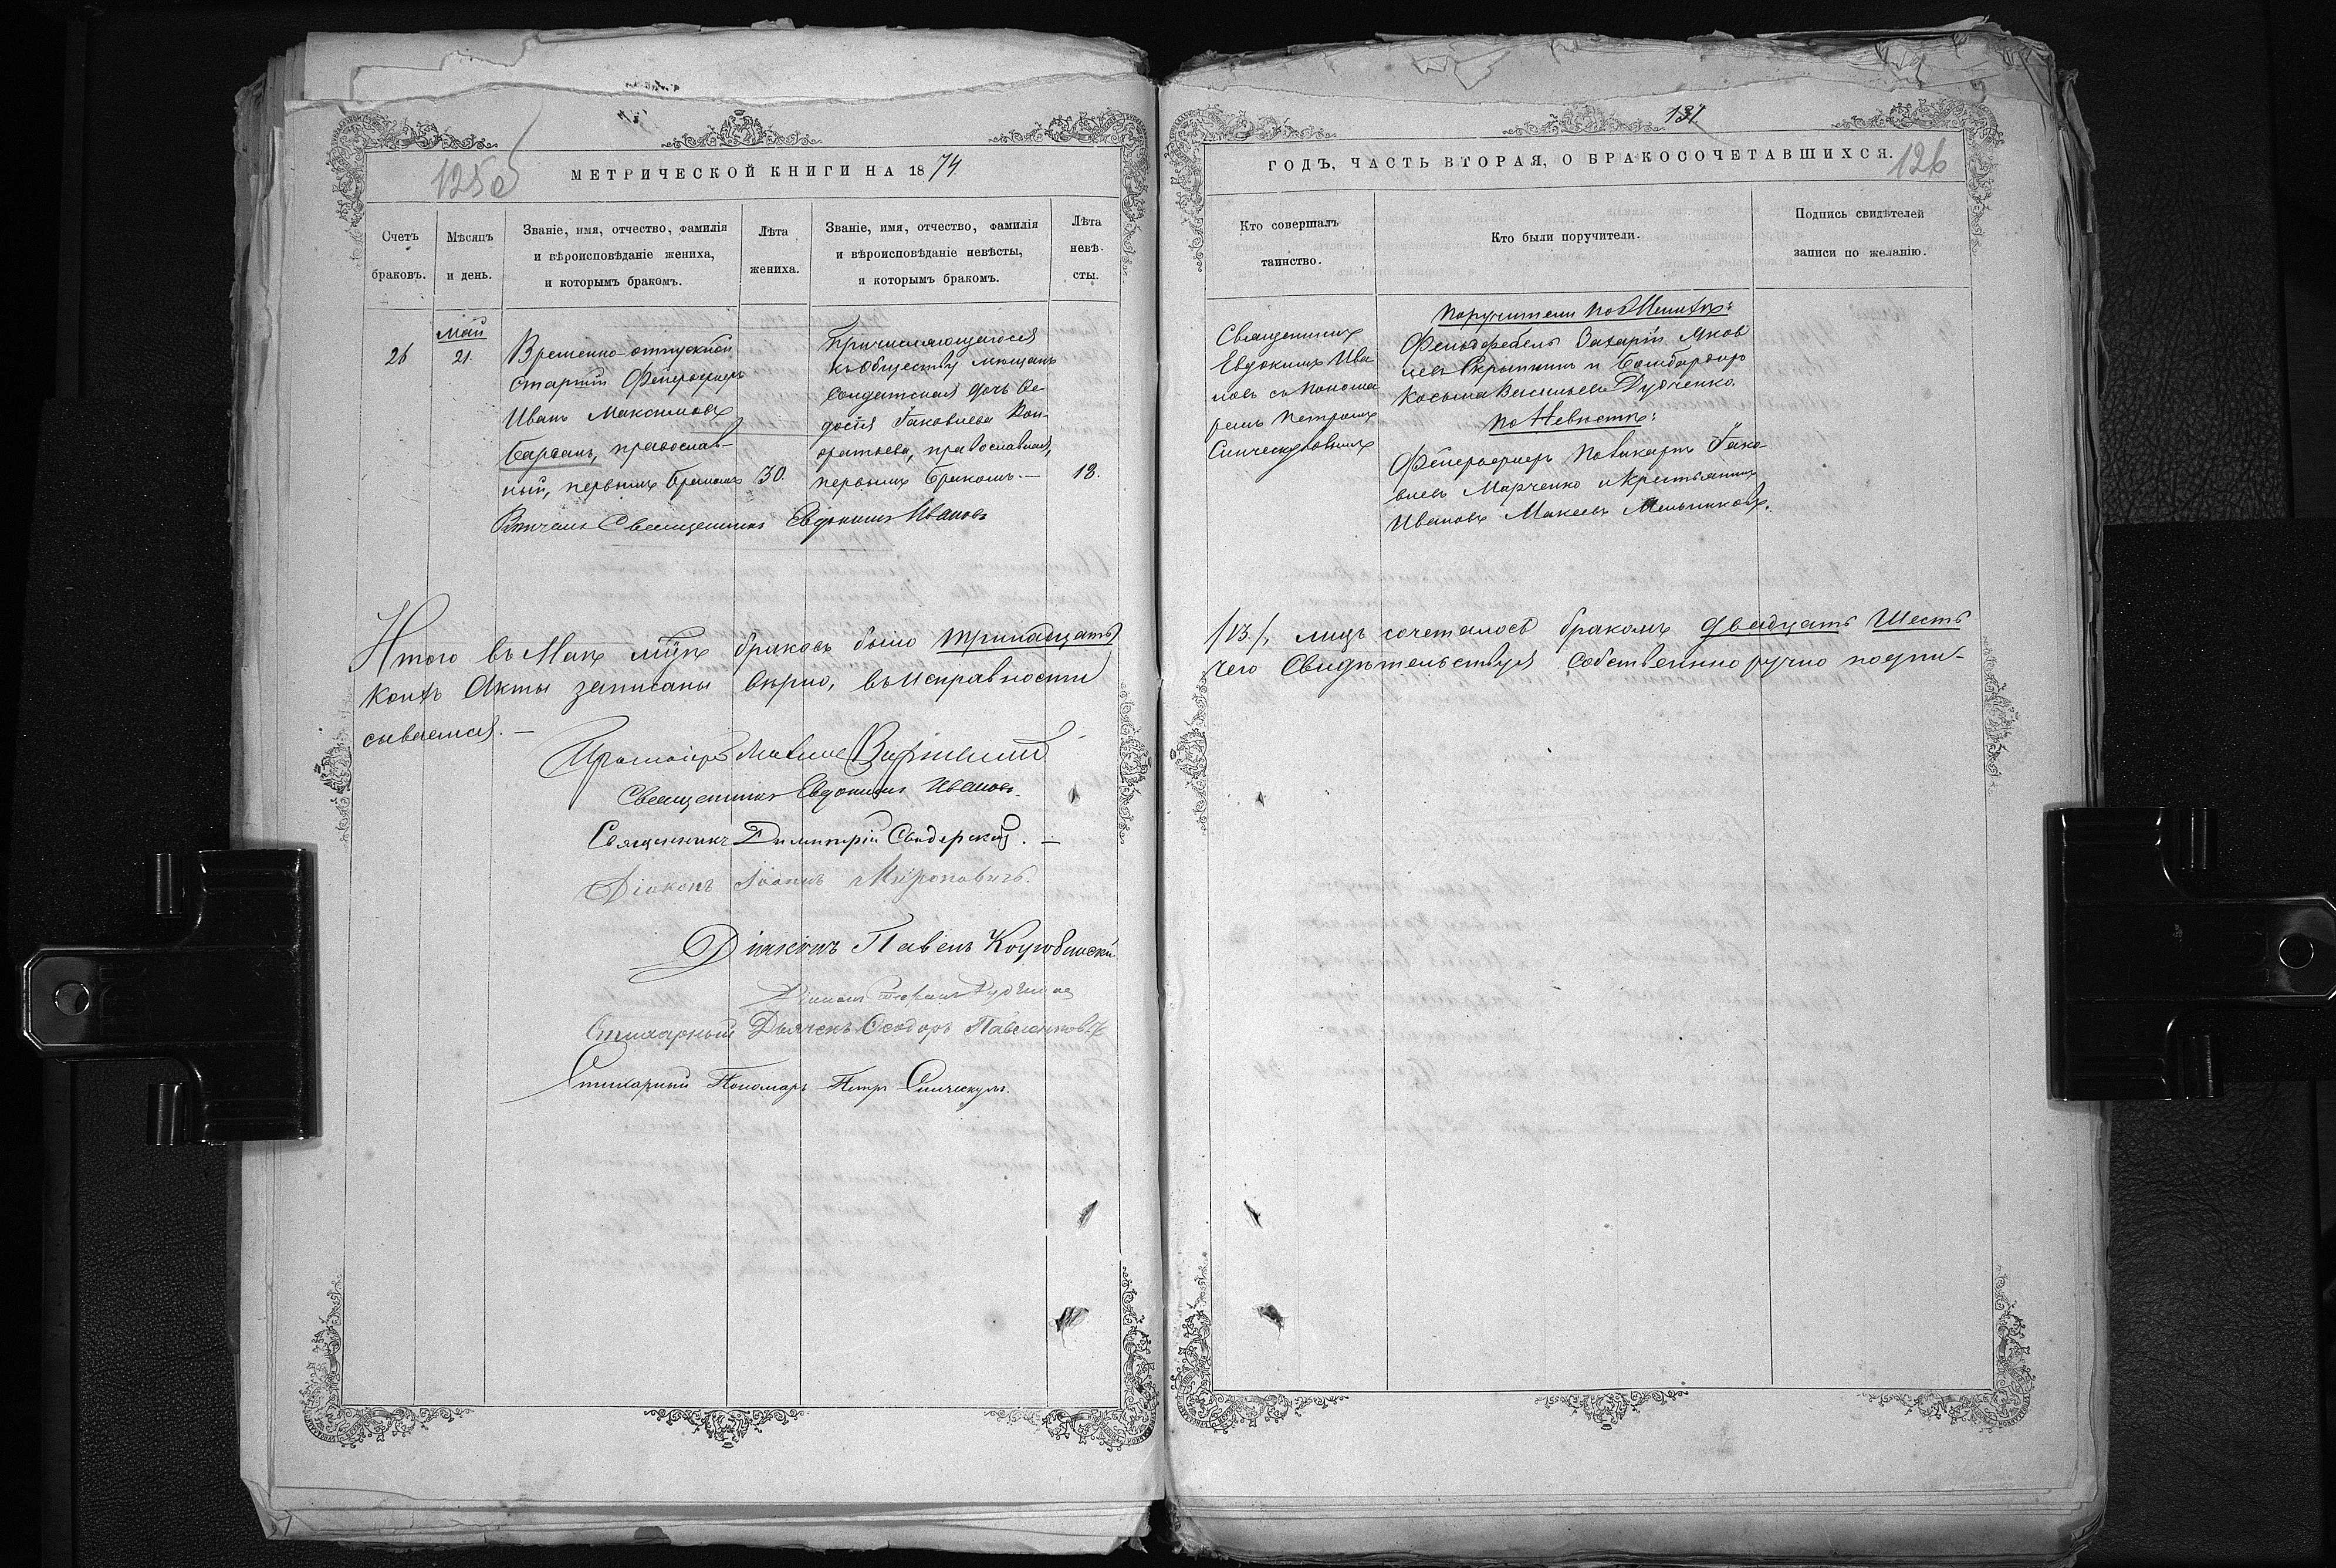 125об
МЕТРИЧЕСКОЙ КНИГИ НА 1874
Счетъ браковъ.
Мѣсяцъ и день.
Званіе, имя, отчество, фамилія
и вѣроисповѣданіе жениха,
и которымъ бракомъ.
Лѣта жениха.
Званіе, имя, отчество, фамилія
и вѣроисповѣданіе невѣсты,
и которымъ бракомъ.
Лѣта невѣ-
сты.
26
Май
21.
Временно-отпускной
старшій Фейерверкеръ
Иванъ Максимовъ
православ-
ный, первымъ бракомъ
30.
Причисляющагося
къ Обществу мѣщанъ
Солдатская дочь Ѳе-
досія Іаковлева Кон-
дратьева, православная,
первымъ бракомъ.—
18.
Вѣнчалъ Священникъ Евдокимъ Ивановъ
Итого въ Маѣ мцѣ браковъ было тринадцать
коихъ Акты записаны вѣрно, въ исправности
сываемся.—
Протоіерей
Священникъ Евдокимъ Ивановъ.
Священникъ Димитрій Свидерскій.—
Діаконъ Іоаннъ Мироновичъ.
Діаконъ Павелъ
Діаконъ
Стихарный Дьячекъ Ѳеодоръ
Стихарный Пономарь Петръ Синческулъ.
131
ГОДЪ, ЧАСТЬ ВТОРАЯ, О БРАКОСОЧЕТАВШИХСЯ.
126
Кто совершалъ
таинство.
Кто были поручители.
Подпись свидѣтелей
записи по желанію.
Священникъ
Евдокимъ Ива-
новъ съ понома
ремъ Петромъ
Синческуловымъ
Поручители по Женихѣ:
Фельдфебель Захарій Яков
левъ Скрыпкинъ и Бомбардиръ
Косьма Васильевъ Дудченко.
По Невѣстѣ:
Фейерверкеръ Поликарпъ Іако-
влевъ Марченко и Крестьянинъ
Ивановъ Мельниковъ.
/13./, лицъ сочеталось бракомъ двадцать Шесть
чего Свидѣтельствуя Собственноручно подпи-